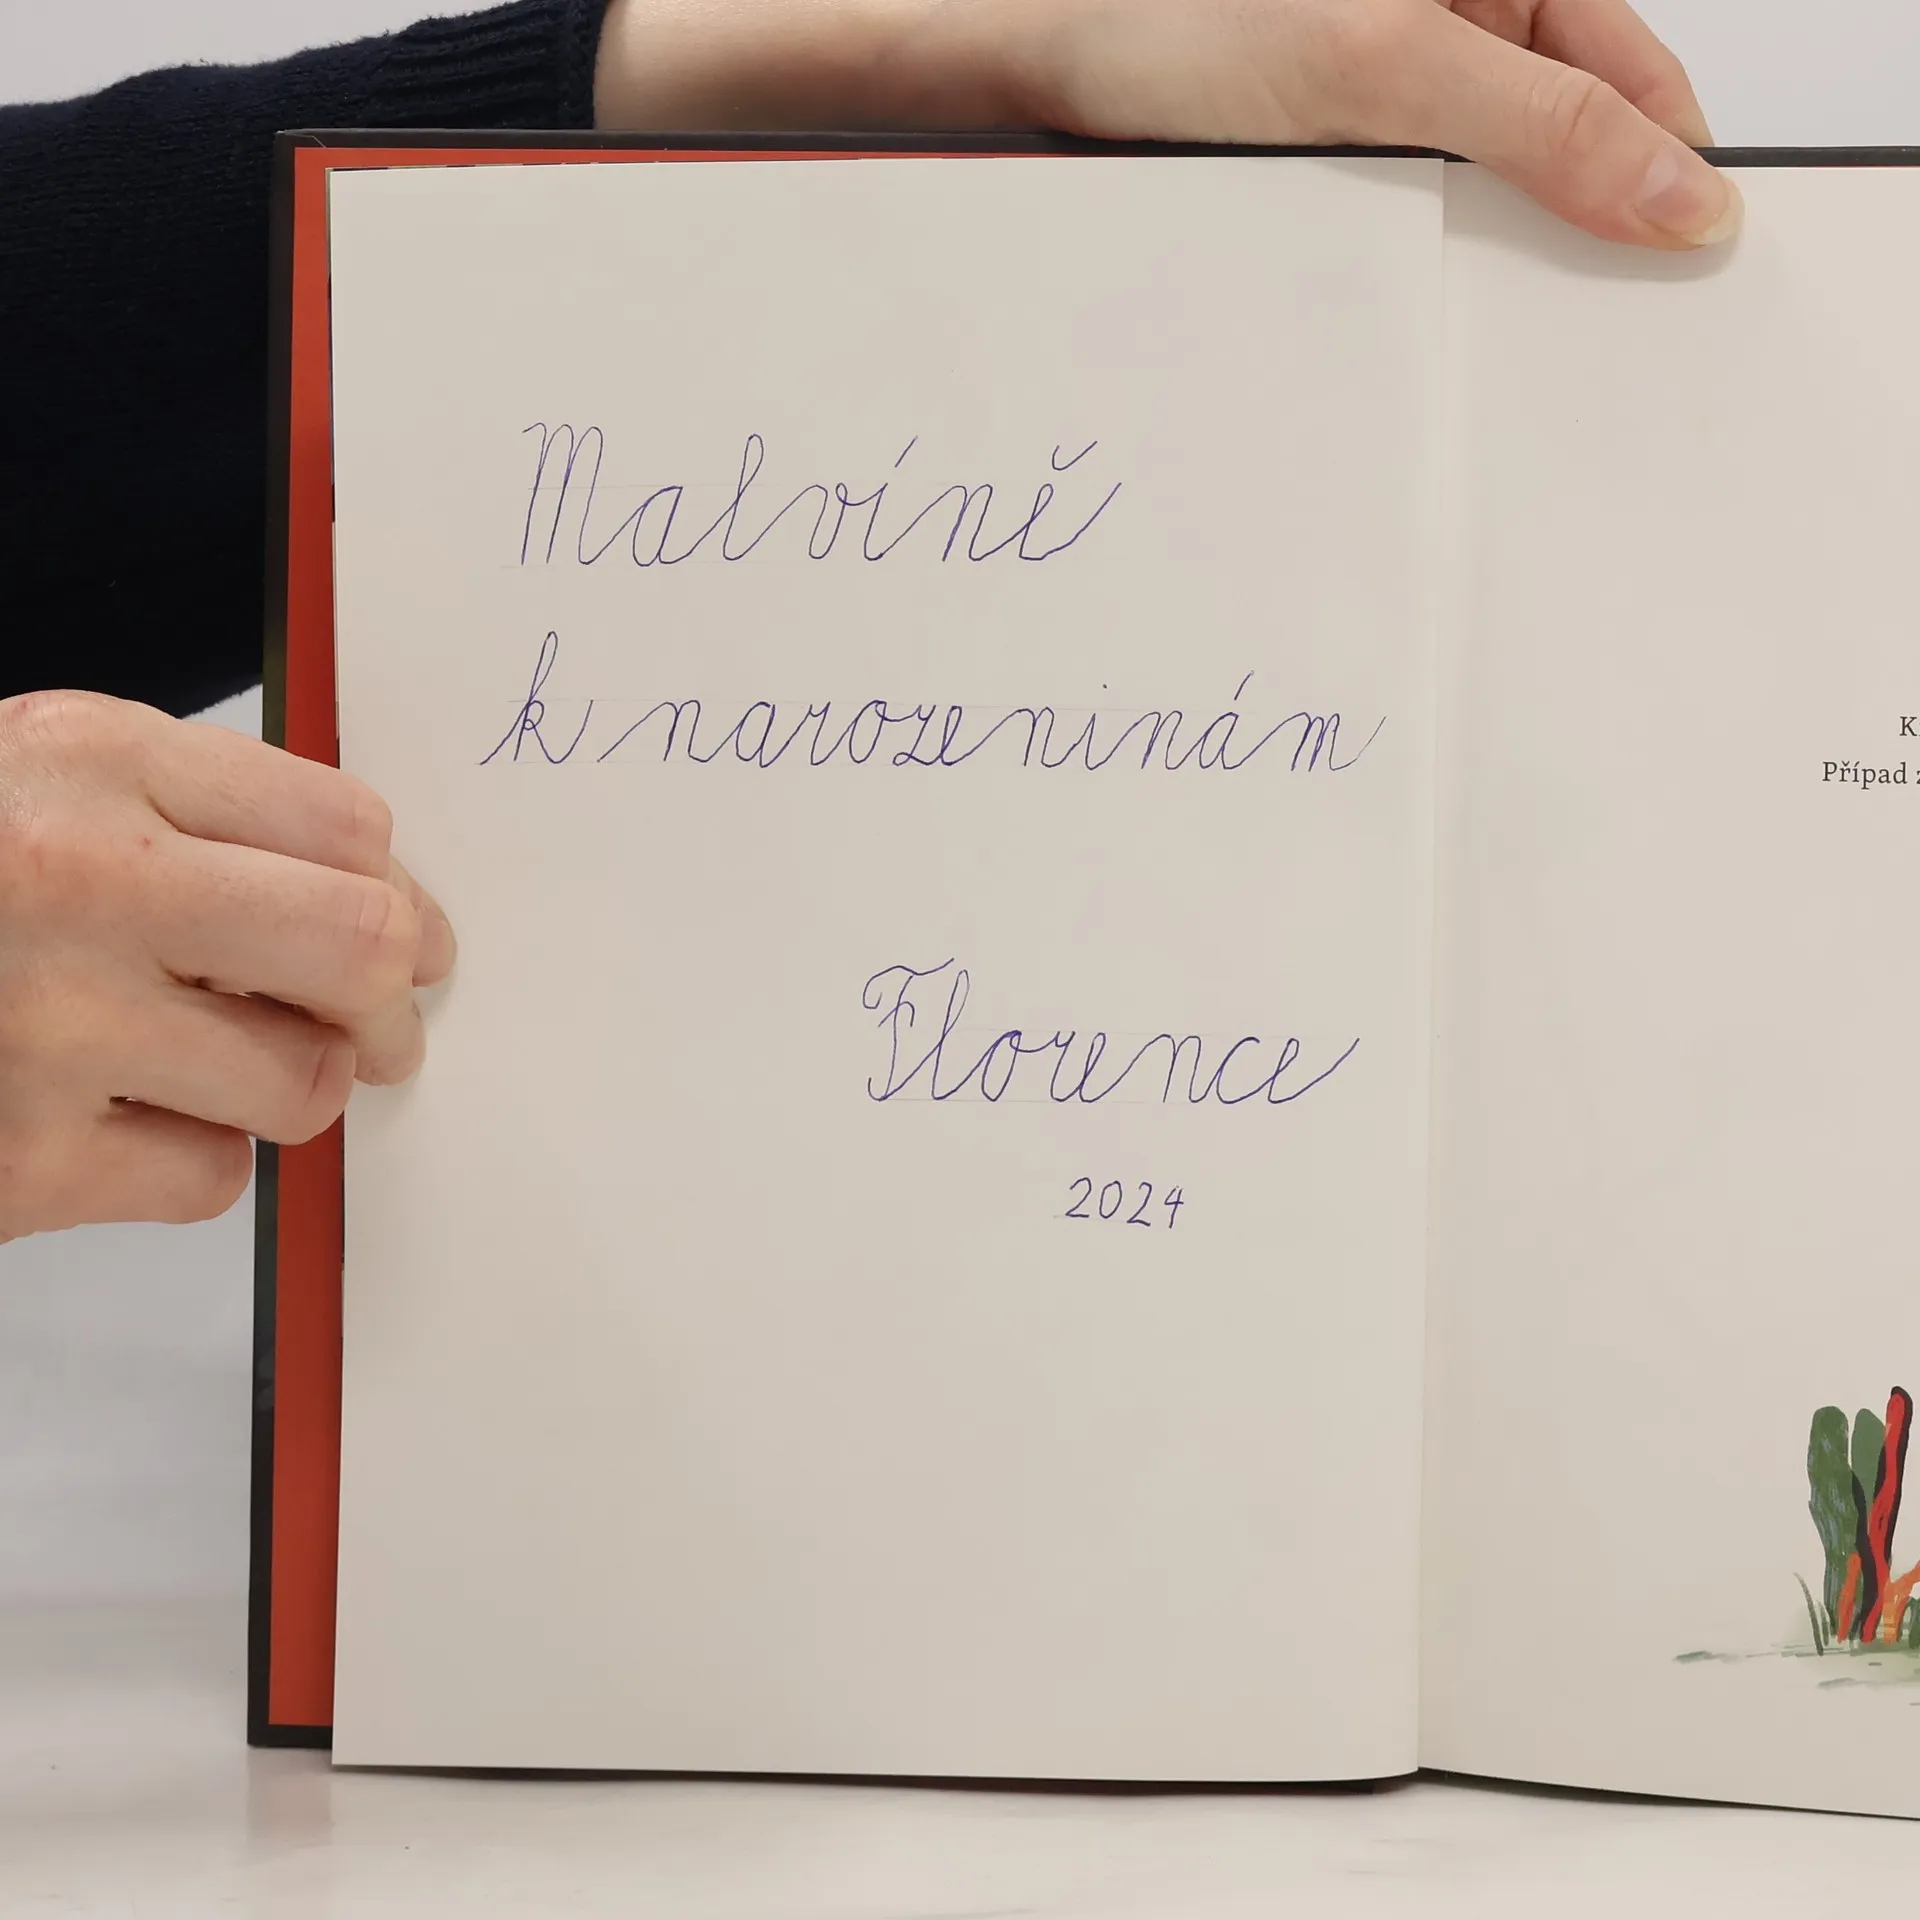 Malvíně
k narozeninám
Florence
2024
Případ